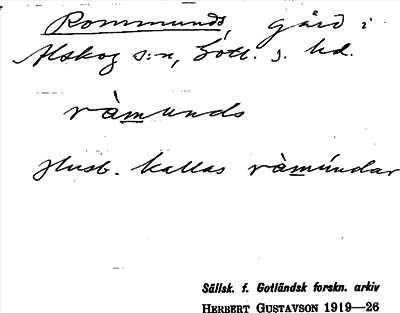 Rommunds, gård i
Alskog s:n, Gotl. s. hd.
ràmunds
Husb. kallas ràmúndar
Sällsk. f. Gotländsk forskn. arkiv
HERBERT GUSTAVSON 1919—26